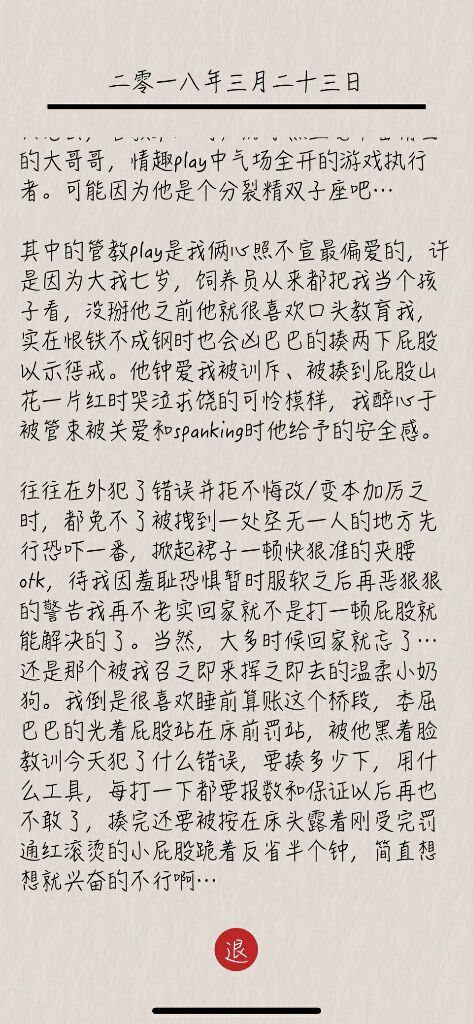 二零一八年三月二十三日
的大哥哥，情趣play中气场全开的游戏执行
者。可能因为他是个分裂精双子座吧…
其中的管教play是我俩心照不宣最偏爱的，许
是因为大我七岁，饲养员从来都把我当个孩
子看，没掰他之前他就很喜欢口头教育我，
实在恨铁不成钢时也会凶巴巴的揍两下屁股
以示惩戒。他钟爱我被训斥、被揍到屁股山
花一片红时哭泣求饶的可怜模样，我醉心于
被管束被关爱和spanking时他给予的安全感。
往往在外犯了错误并拒不悔改/变本加厉之
时，都免不了被拽到一处空无一人的地方先
行恐吓一番，掀起裙子一顿快狠准的夹腰
otk，待我因羞耻恐惧暂时服软之后再恶狠狠
的警告我再不老实回家就不是打一顿屁股就
能解决的了。当然，大多时候回家就忘了…
还是那个被我召之即来挥之即去的温柔小奶
狗。我倒是很喜欢睡前算账这个桥段，委屈
巴巴的光着屁股站在床前罚站，被他黑着脸
教训今天犯了什么错误，要揍多少下，用什
么工具，每打一下都要报数和保证以后再也
不敢了，揍完还要被按在床头露着刚受完罚
通红滚烫的小屁股跪着反省半个钟，简直想
想就兴奋的不行啊…
退